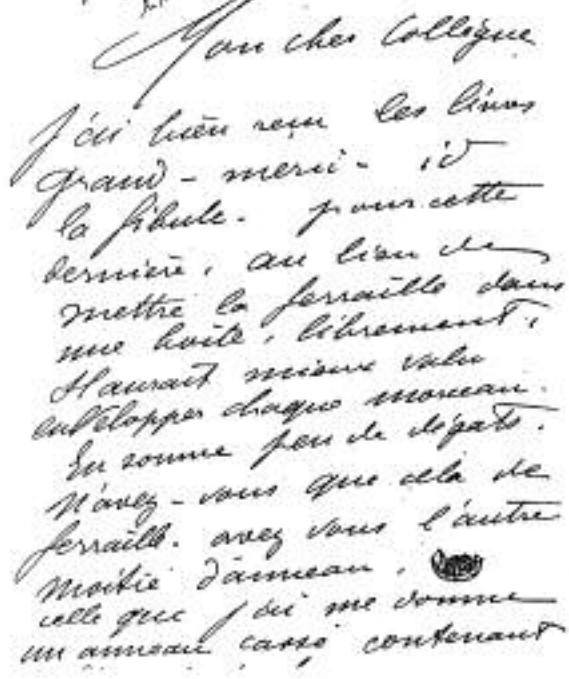 Mon cher Collègue
J'ai bien reçu les livres
grand-merci - id
la fibule. pour cette
dernière, au lieu de
mettre la ferraille dans
une boîte, librement,
il aurait mieux valu
enveloper chaque morceau.
En somme peu de dégats.
N'avez-vous que cela de
ferraille. avez vous l'autre
moitié d'anneau,
celle que j'ai me donne
un anneau cassé contenant